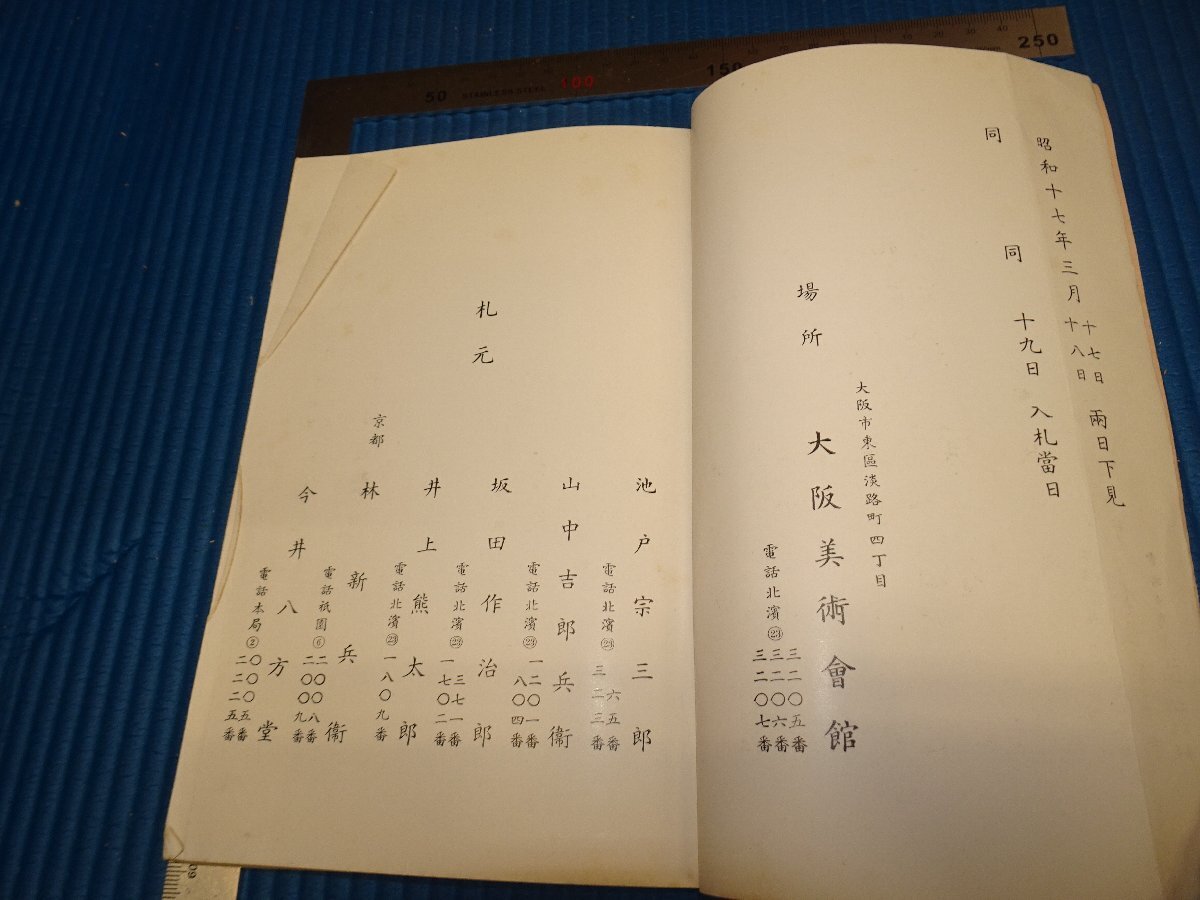 昭和十七年三月 十七日 十八日 兩日下見
同 同 十九日 入札當日
大阪市東區淡路町四丁目
場所 大阪美術會館
電話北濱㉓ 三二〇五番 三二〇六番 三二〇七番
札元
池戸宗三郎
電話北濱㉓ 六五番 三二三番
山中吉郎兵衞
電話北濱㉓ 一二〇一番 八〇四番
坂田作治郎
電話北濱㉓ 三七一番 一七〇二番
井上熊太郎
電話北濱㉓ 一八〇九番
京都
林新兵衞
電話祇園⑥ 二〇〇八番 二〇〇九番
今井八方堂
電話本局② 〇〇五番 二二二五番
50 STAINLESS STEEL 100 150 250